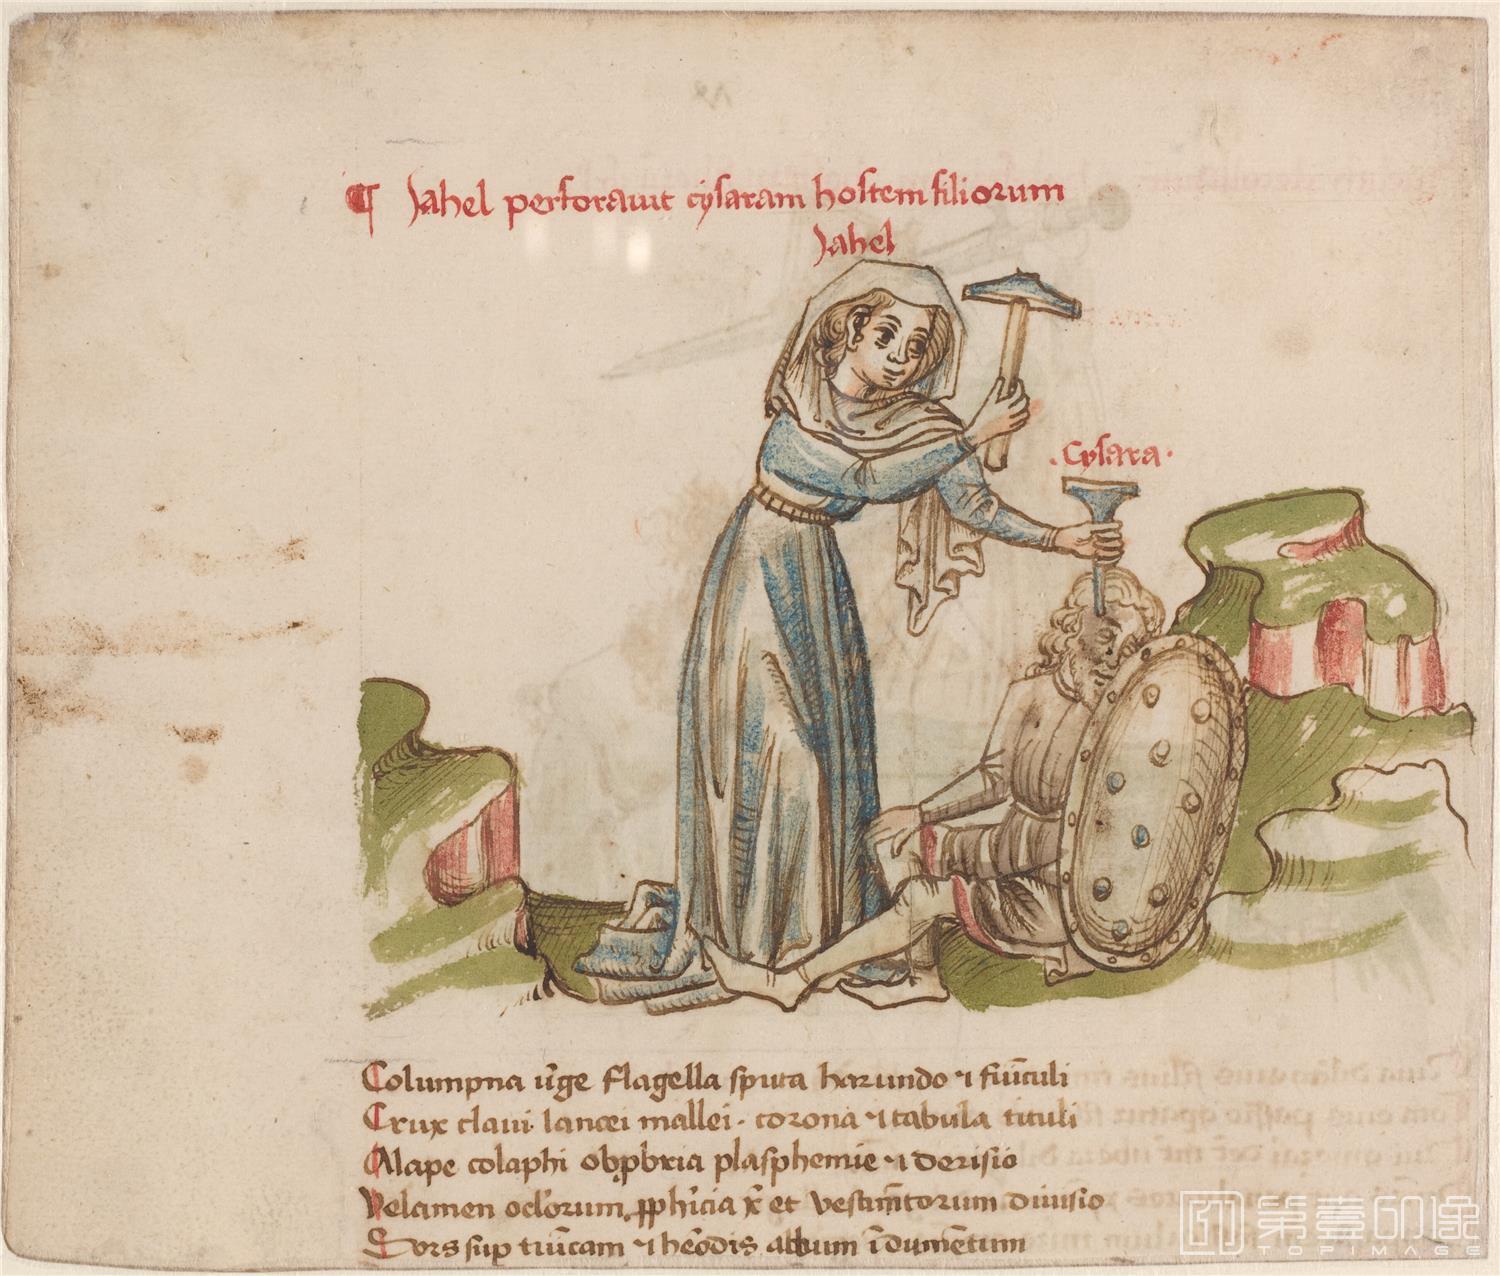 ¶ Jahel perforauit cysaram hostem filiorum
Jahel
· Cysara ·
Columpna v̄ge flagella sputa harundo ⁊ fūiculi
Crux claui lancei mallei · corona ⁊ tabula tituli
Alape colaphi obꝓbria plasphemie ⁊ derisio
Velamen oculorum ꝓph̄icia x̄ et vestim̄torum diuisio
Sors suꝑ tūicam ⁊ hēodis album īdumētum
第壹印像
TOPIMAGE